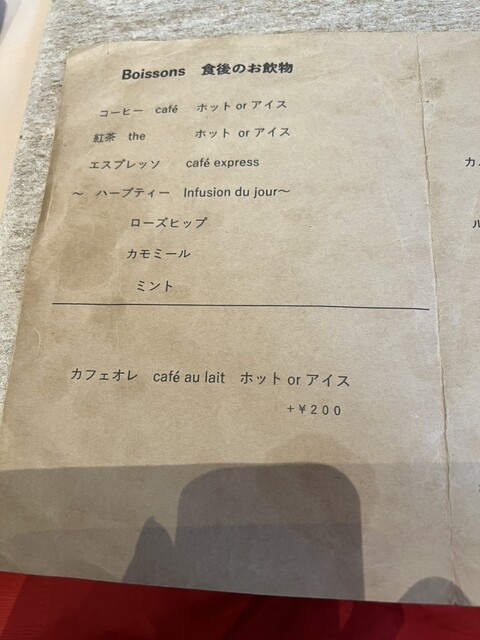 Boissons 食後のお飲物
コーヒー café ホット or アイス
紅茶 the ホット or アイス
エスプレッソ café express
～ ハーブティー Infusion du jour～
ローズヒップ
カモミール
ミント
カフェオレ café au lait ホット or アイス
+￥200
カ
ル